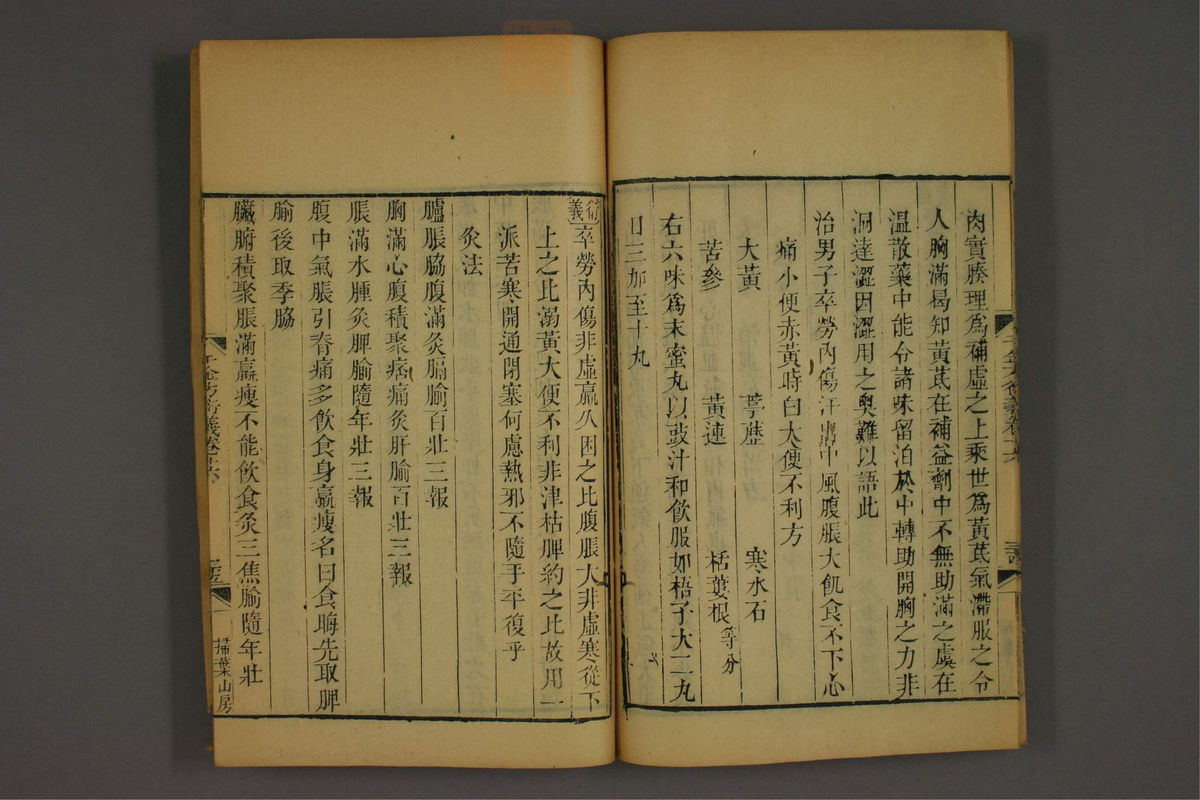 肉實腠理為補虛之上乘世為黃芪氣滯服之令
人胸滿曷知黃芪在補益劑中不無助滿之虞在
溫散藥中能令諸味留泊於中轉助開胸之力非
洞達澀因澀用之奧難以語此
治男子卒勞內傷汗出中風腹脹大飢食不下心
痛小便赤黃時白大便不利方
大黃 葶藶 寒水石
苦參 黃連 栝蔞根等分
右六味為末蜜丸以豉汁和飲服如梧子大二丸
日三加至十丸
衍義卒勞內傷非虛羸久困之比腹脹大非虛寒從下
上之比溺黃大便不利非津枯脾約之比故用一
派苦寒開通閉塞何慮熱邪不隨手平復乎
灸法
臚脹脇腹滿灸膈腧百壯三報
胸滿心腹積聚痞痛灸肝腧百壯三報
脹滿水腫灸脾腧隨年壯三報
腹中氣脹引脊痛多飲食身羸瘦名曰食晦先取脾
腧後取季脇
臟腑積聚脹滿羸瘦不能飲食灸三焦腧隨年壯
千金方衍義卷十六
掃葉山房